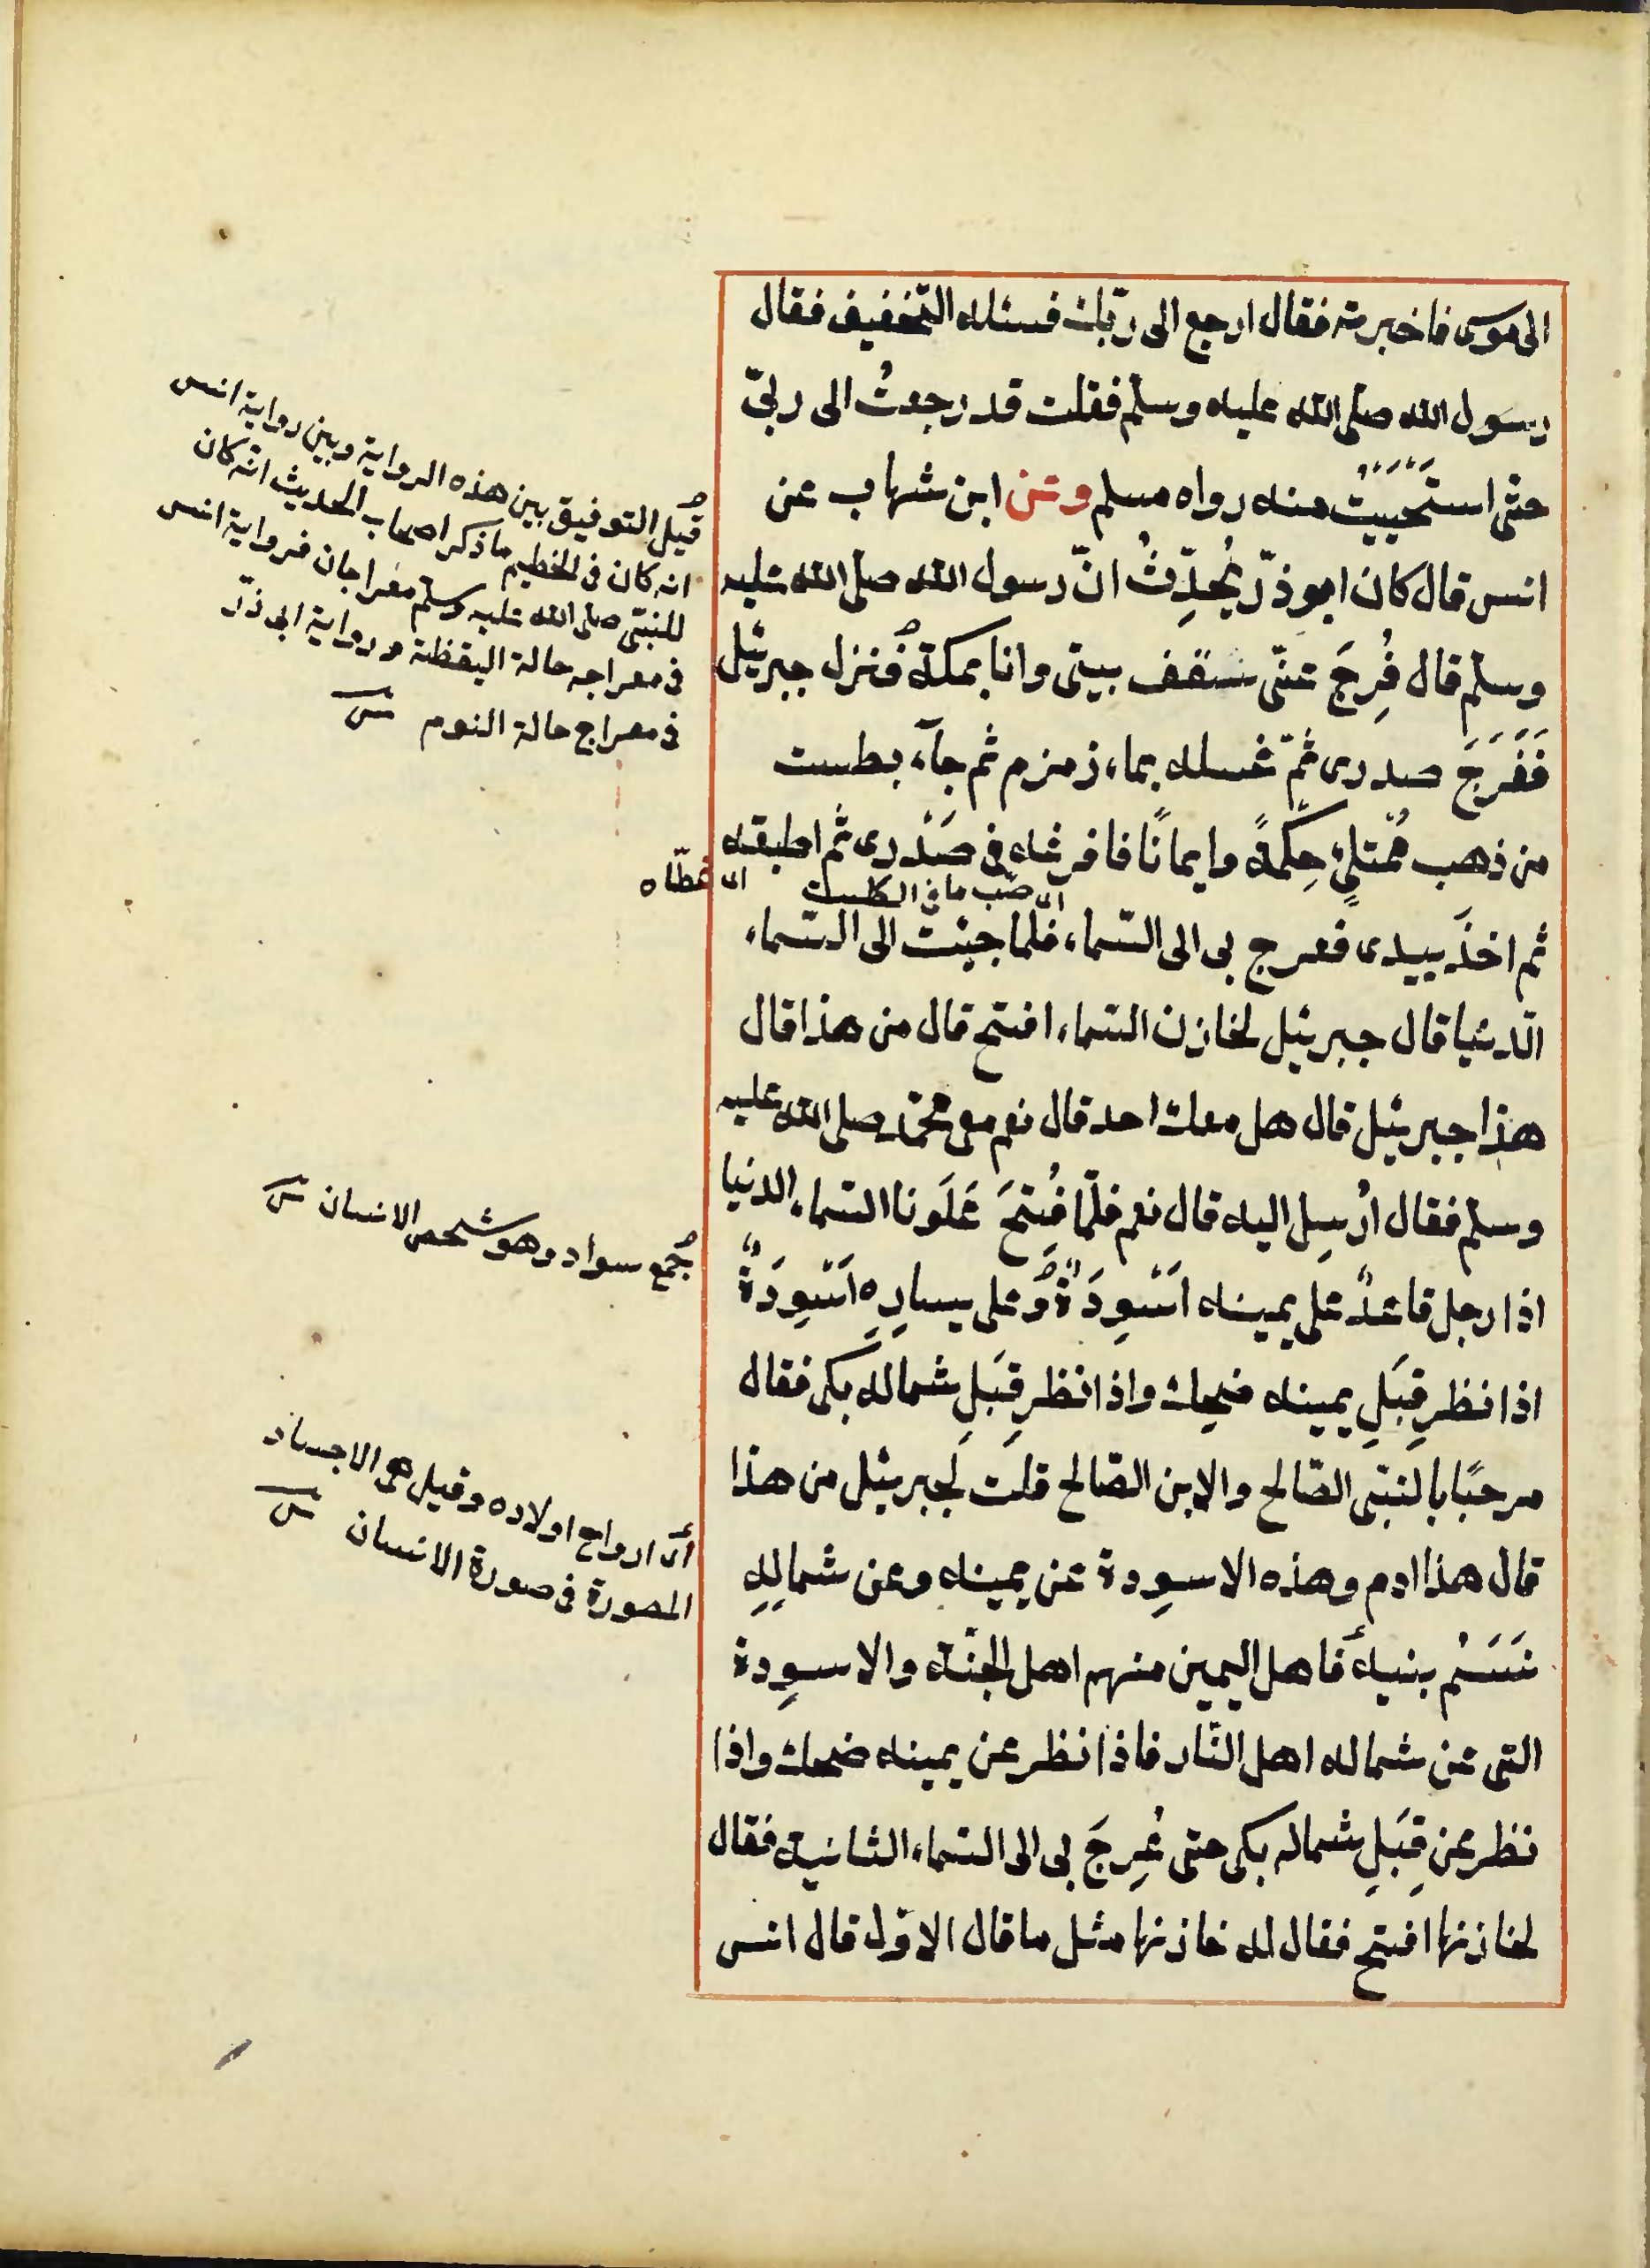 الى موسى فاخبرته فقال ارجع الى ربّك فسئله التّخفيف فقال
رسول الله صلى الله عليه وسلم فقلت قد رجعتُ الى ربّى
حتى استَحيَيتُ منه رواه مسلم وعن ابن شهاب عن
انس قال كان ابو ذرّ يُحدِّثُ انّ رسول الله صلى الله عليه
وسلم قال فُرِجَ عنّى سقف بيتى وانا بمكة فنزل جبرئيل
فَفَرَجَ صدرى ثمّ غسله بماء زمزم ثم جآء بطست
من ذهب مُمتلئٍ حِكمةً وايمانًا فافرغه فى صَدْرى ثم اطبقه
اى صبّ ما فى الطست
اى غطّاه
ثم اخذَ بيدى فعرج بى الى السّماء فلما جئت الى السّماء
الدّنيا قال جبرئيل لخازن السّماء افتح قال من هذا قال
هذا جبرئيل قال هل معك احد قال نعم معى محمّد صلى الله عليه
وسلم فقال اُرْسِل اليه قال نعم فلمّا فُتِحَ عَلَونا السّماء الدنيا
اذا رجل قاعدٌ على يمينه اَسْوِدَةٌ وعلى يسارِهِ اَسْوِدَةٌ
اذا نظر قِبَلِ يمينه ضحِك واذا نظر قِبَلِ شماله بكى فقال
مرحبًا بالنبّى الصّالح والابن الصّالح قلت لجبرئيل من هذا
قال هذا ادم وهذه الاسوِدة عن يمينه وعن شمالِهِ
نَسَمُ بنيه فاهل اليمين منهم اهل الجنّة والاسوِدة
التى عن شماله اهل النّار فاذا نظر عن يمينه ضحك واذا
نظر عن قِبَلِ شماله بكى حتى عُرِجَ بى الى السّماء الثانية فقال
لخازنها افتح فقال له خازنها مثل ما قال الاوّل قال انس
قيل التوفيق بين هذه الرواية وبين رواية انس
انه كان فى الحطيم ما ذكر اصحاب الحديث انّه كان
للنبّى صلى الله عليه وسلم معراجان فرواية انس
فى معراجه حالة اليقظة ورواية ابى ذرّ
فى معراج حالة النوم
جمع سواد وهو شخص الانسان
اى ارواح اولاده وقيل هى الاجساد
المصورة فى صورة الانسان